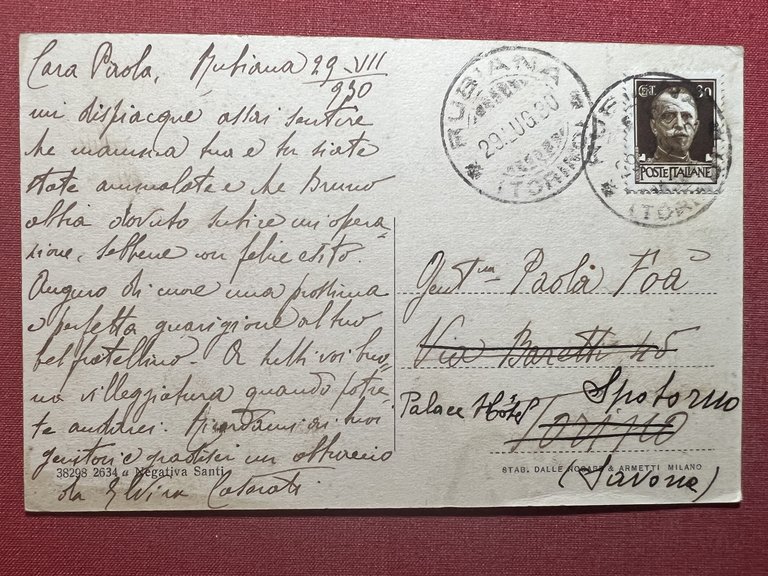 Cara Paola, Rubiana 29-VII
930
mi dispiacque assai sentire
che mamma tua e tu siate
state ammalate e che Bruno
abbia dovuto subire un'opera-
zione, sebbene con felice esito.
Auguro di cuore una prossima
e perfetta guarigione al tuo
bel fratellino. A tutti voi buo-
na villeggiatura quando potre-
te andarci. Ricordami ai tuoi
genitori e gradisci un
da Elvira
38298 2634 a Negativa Santi
RUBIANA
29.LUG.30
(TORINO)
CENT. 30
POSTE ITALIANE
(TORINO)
Gent.ma Paola Foà
Via Baretti 45
Palace Hôtel Spotorno
Torino
STAB. DALLE NOGARE & ARMETTI MILANO
(Savona)